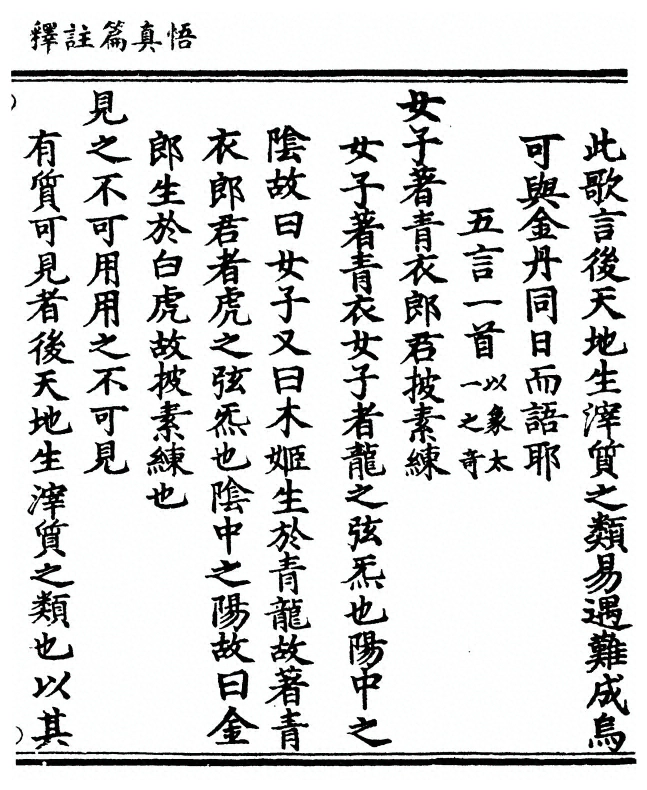 悟真篇註釋
此歌言後天地生滓質之類易遇難成烏
可與金丹同日而語耶
五言一首以象太一之奇
女子著青衣郎君披素練
女子著青衣女子者龍之弦炁也陽中之
陰故曰女子又曰木姬生於青龍故著青
衣郎君者虎之弦炁也陰中之陽故曰金
郎生於白虎故披素練也
見之不可用用之不可見
有質可見者後天地生滓質之類也以其